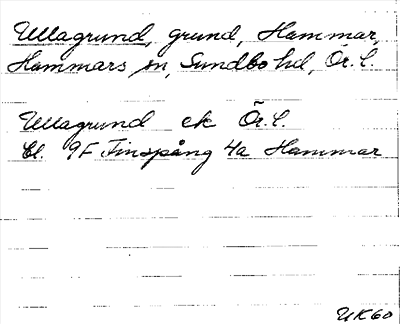 Ullagrund, grund, Hammar,
Hammars sn, Sundbo hd, Ör. l.
Ullagrund ek Ör. l.
Bl. 9F Finspång 4a Hammar
UK60